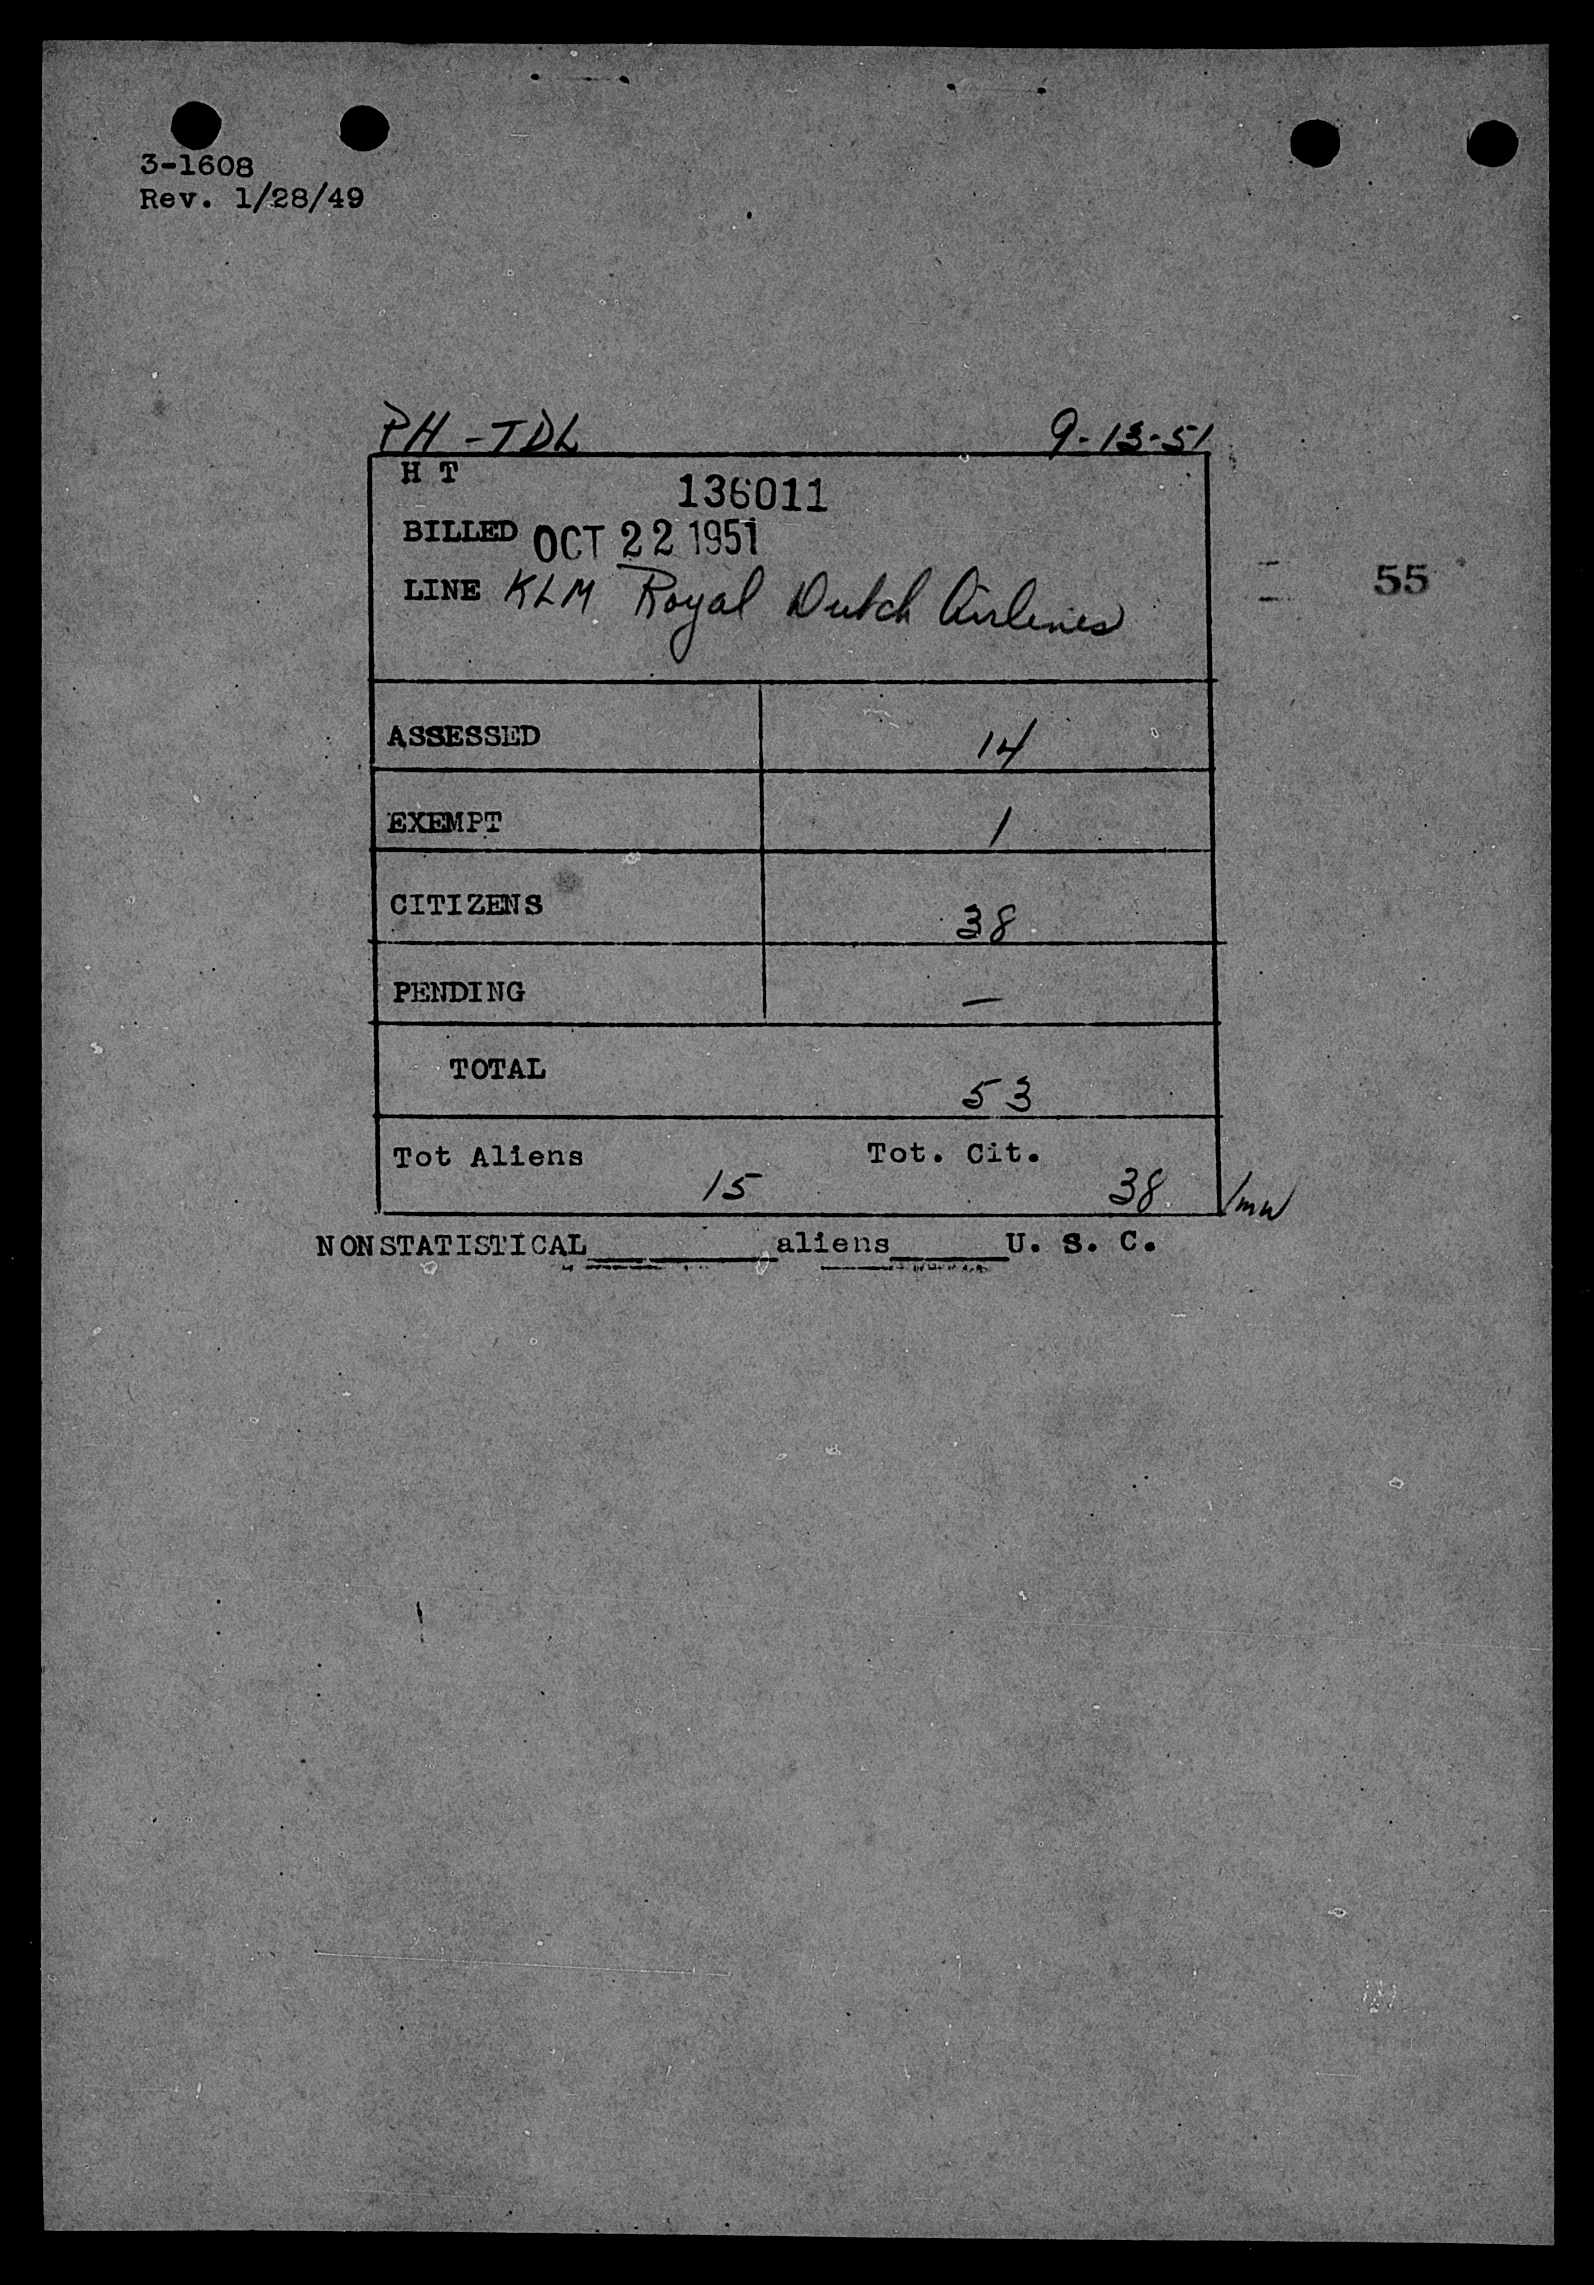 3-1608
Rev. 1/28/49
PH-TDL 9-13-51
H T 136011
BILLED OCT 22 1951
LINE KLM Royal Dutch Airlines
55
ASSESSED 14
EXEMPT 1
CITIZENS 38
PENDING —
TOTAL 53
Tot Aliens 15 Tot. Cit. 38
NONSTATISTICAL__________aliens______U. S. C.